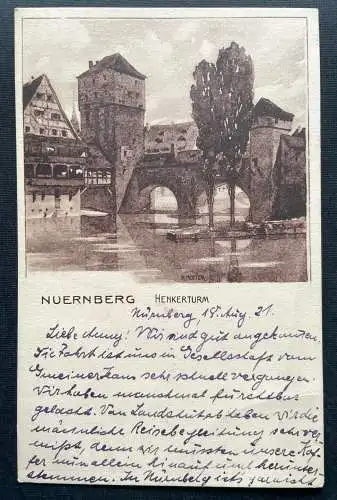 NUERNBERG HENKERTURM
Nürnberg 18. Aug. 21.
Liebe Anny! Wir sind gut angekommen.
Die Fahrt ist uns in Gesellschaft vom
sehr schnell vergangen.
Wir haben manchmal furchtbar
gelacht. Von Landshut ab haben wir die
männliche Reisebegleitung sehr ver-
mißt, denn wir mussten unsere Kof-
fer nun allein hinauf und herunter-
stemmen. In Nürnberg